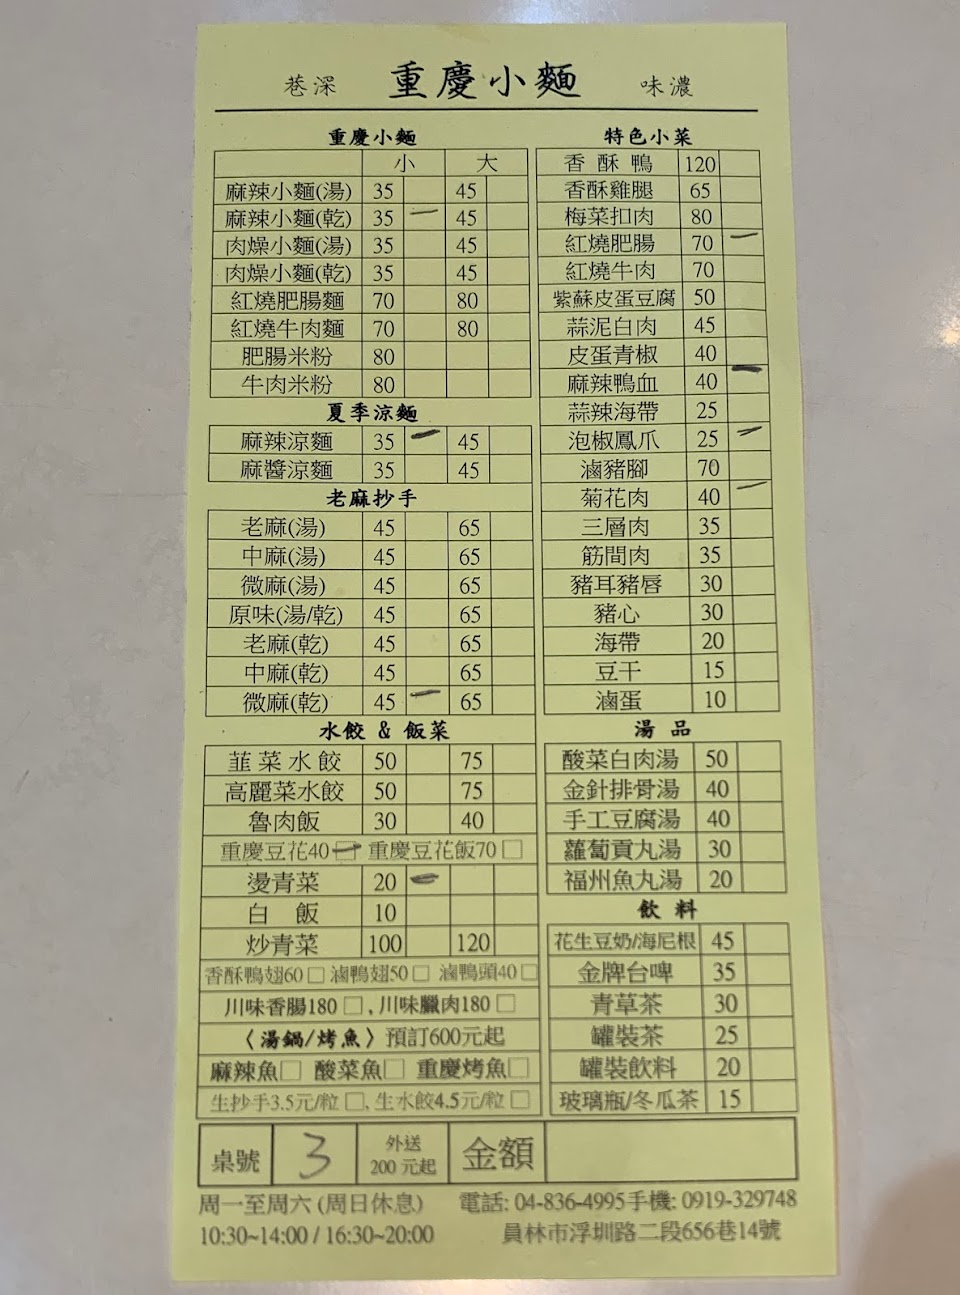 巷深 重慶小麵 味濃
重慶小麵
小 大
麻辣小麵(湯) 35 45
麻辣小麵(乾) 35 一 45
肉燥小麵(湯) 35 45
肉燥小麵(乾) 35 45
紅燒肥腸麵 70 80
紅燒牛肉麵 70 80
肥腸米粉 80
牛肉米粉 80
夏季涼麵
麻辣涼麵 35 一 45
麻醬涼麵 35 45
老麻抄手
老麻(湯) 45 65
中麻(湯) 45 65
微麻(湯) 45 65
原味(湯/乾) 45 65
老麻(乾) 45 65
中麻(乾) 45 65
微麻(乾) 45 一 65
水餃 & 飯菜
韮菜水餃 50 75
高麗菜水餃 50 75
魯肉飯 30 40
重慶豆花40一□ 重慶豆花飯70□
燙青菜 20 一
白 飯 10
炒青菜 100 120
香酥鴨翅60□ 滷鴨翅50□ 滷鴨頭40□
川味香腸180 □,川味臘肉180 □
〈湯鍋/烤魚〉預訂600元起
麻辣魚□ 酸菜魚□ 重慶烤魚□
生抄手3.5元/粒 □,生水餃4.5元/粒 □
特色小菜
香酥鴨 120
香酥雞腿 65
梅菜扣肉 80
紅燒肥腸 70 一
紅燒牛肉 70
紫蘇皮蛋豆腐 50
蒜泥白肉 45
皮蛋青椒 40
麻辣鴨血 40 一
蒜辣海帶 25
泡椒鳳爪 25 一
滷豬腳 70
菊花肉 40 一
三層肉 35
筋間肉 35
豬耳豬唇 30
豬心 30
海帶 20
豆干 15
滷蛋 10
湯品
酸菜白肉湯 50
金針排骨湯 40
手工豆腐湯 40
蘿蔔貢丸湯 30
福州魚丸湯 20
飲料
花生豆奶/海尼根 45
金牌台啤 35
青草茶 30
罐裝茶 25
罐裝飲料 20
玻璃瓶/冬瓜茶 15
桌號 3 外送 200 元起 金額
周一至周六 (周日休息) 電話: 04-836-4995手機: 0919-329748
10:30~14:00 / 16:30~20:00 員林市浮圳路二段656巷14號